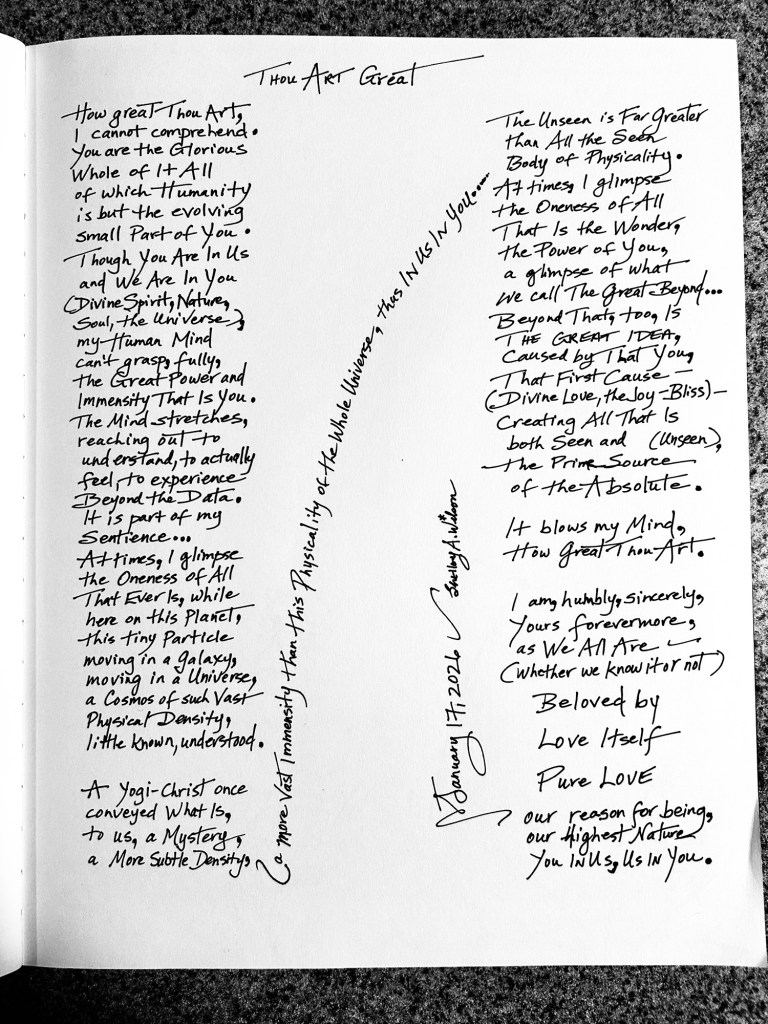 Thou Art Great
How great Thou Art,
I cannot comprehend.
You are the Glorious
Whole of It All
of which Humanity
is but the evolving
small Part of You.
Though You Are In Us
and We Are In You
(Divine Spirit, Nature,
Soul, the Universe),
my Human Mind
can't grasp, fully,
the Great Power and
Immensity That Is You.
The Mind stretches,
reaching out to
understand, to actually
feel, to experience
Beyond the Data.
It is part of my
Sentience...
At times, I glimpse
the Oneness of All
That Ever Is, while
here on this Planet,
this tiny Particle
moving in a galaxy,
moving in a Universe,
a Cosmos of such Vast
Physical Density,
little known, understood.
A Yogi-Christ once
conveyed What Is,
to us, a Mystery,
a More Subtle Density,
a more Vast Immensity than this Physicality of the Whole Universe, thus IN US IN YOU....
The Unseen is Far Greater
than All the Seen
Body of Physicality.
At times, I glimpse
the Oneness of All
That Is the Wonder,
the Power of You,
a glimpse of what
we call The Great Beyond...
Beyond That, too, Is
THE GREAT IDEA,
Caused by That You,
That First Cause —
(Divine Love, the Joy-Bliss) —
Creating All That Is
both Seen and (Unseen),
the Prime Source
of the Absolute.
It blows my Mind,
How Great Thou Art.
I am, humbly, sincerely,
Yours forevermore,
as We All Are
(Whether we know it or not)
Beloved by
Love Itself
Pure LOVE
our reason for being,
our Highest Nature
You IN Us, Us IN You.
January 17, 2026
Shelley A. Wilson